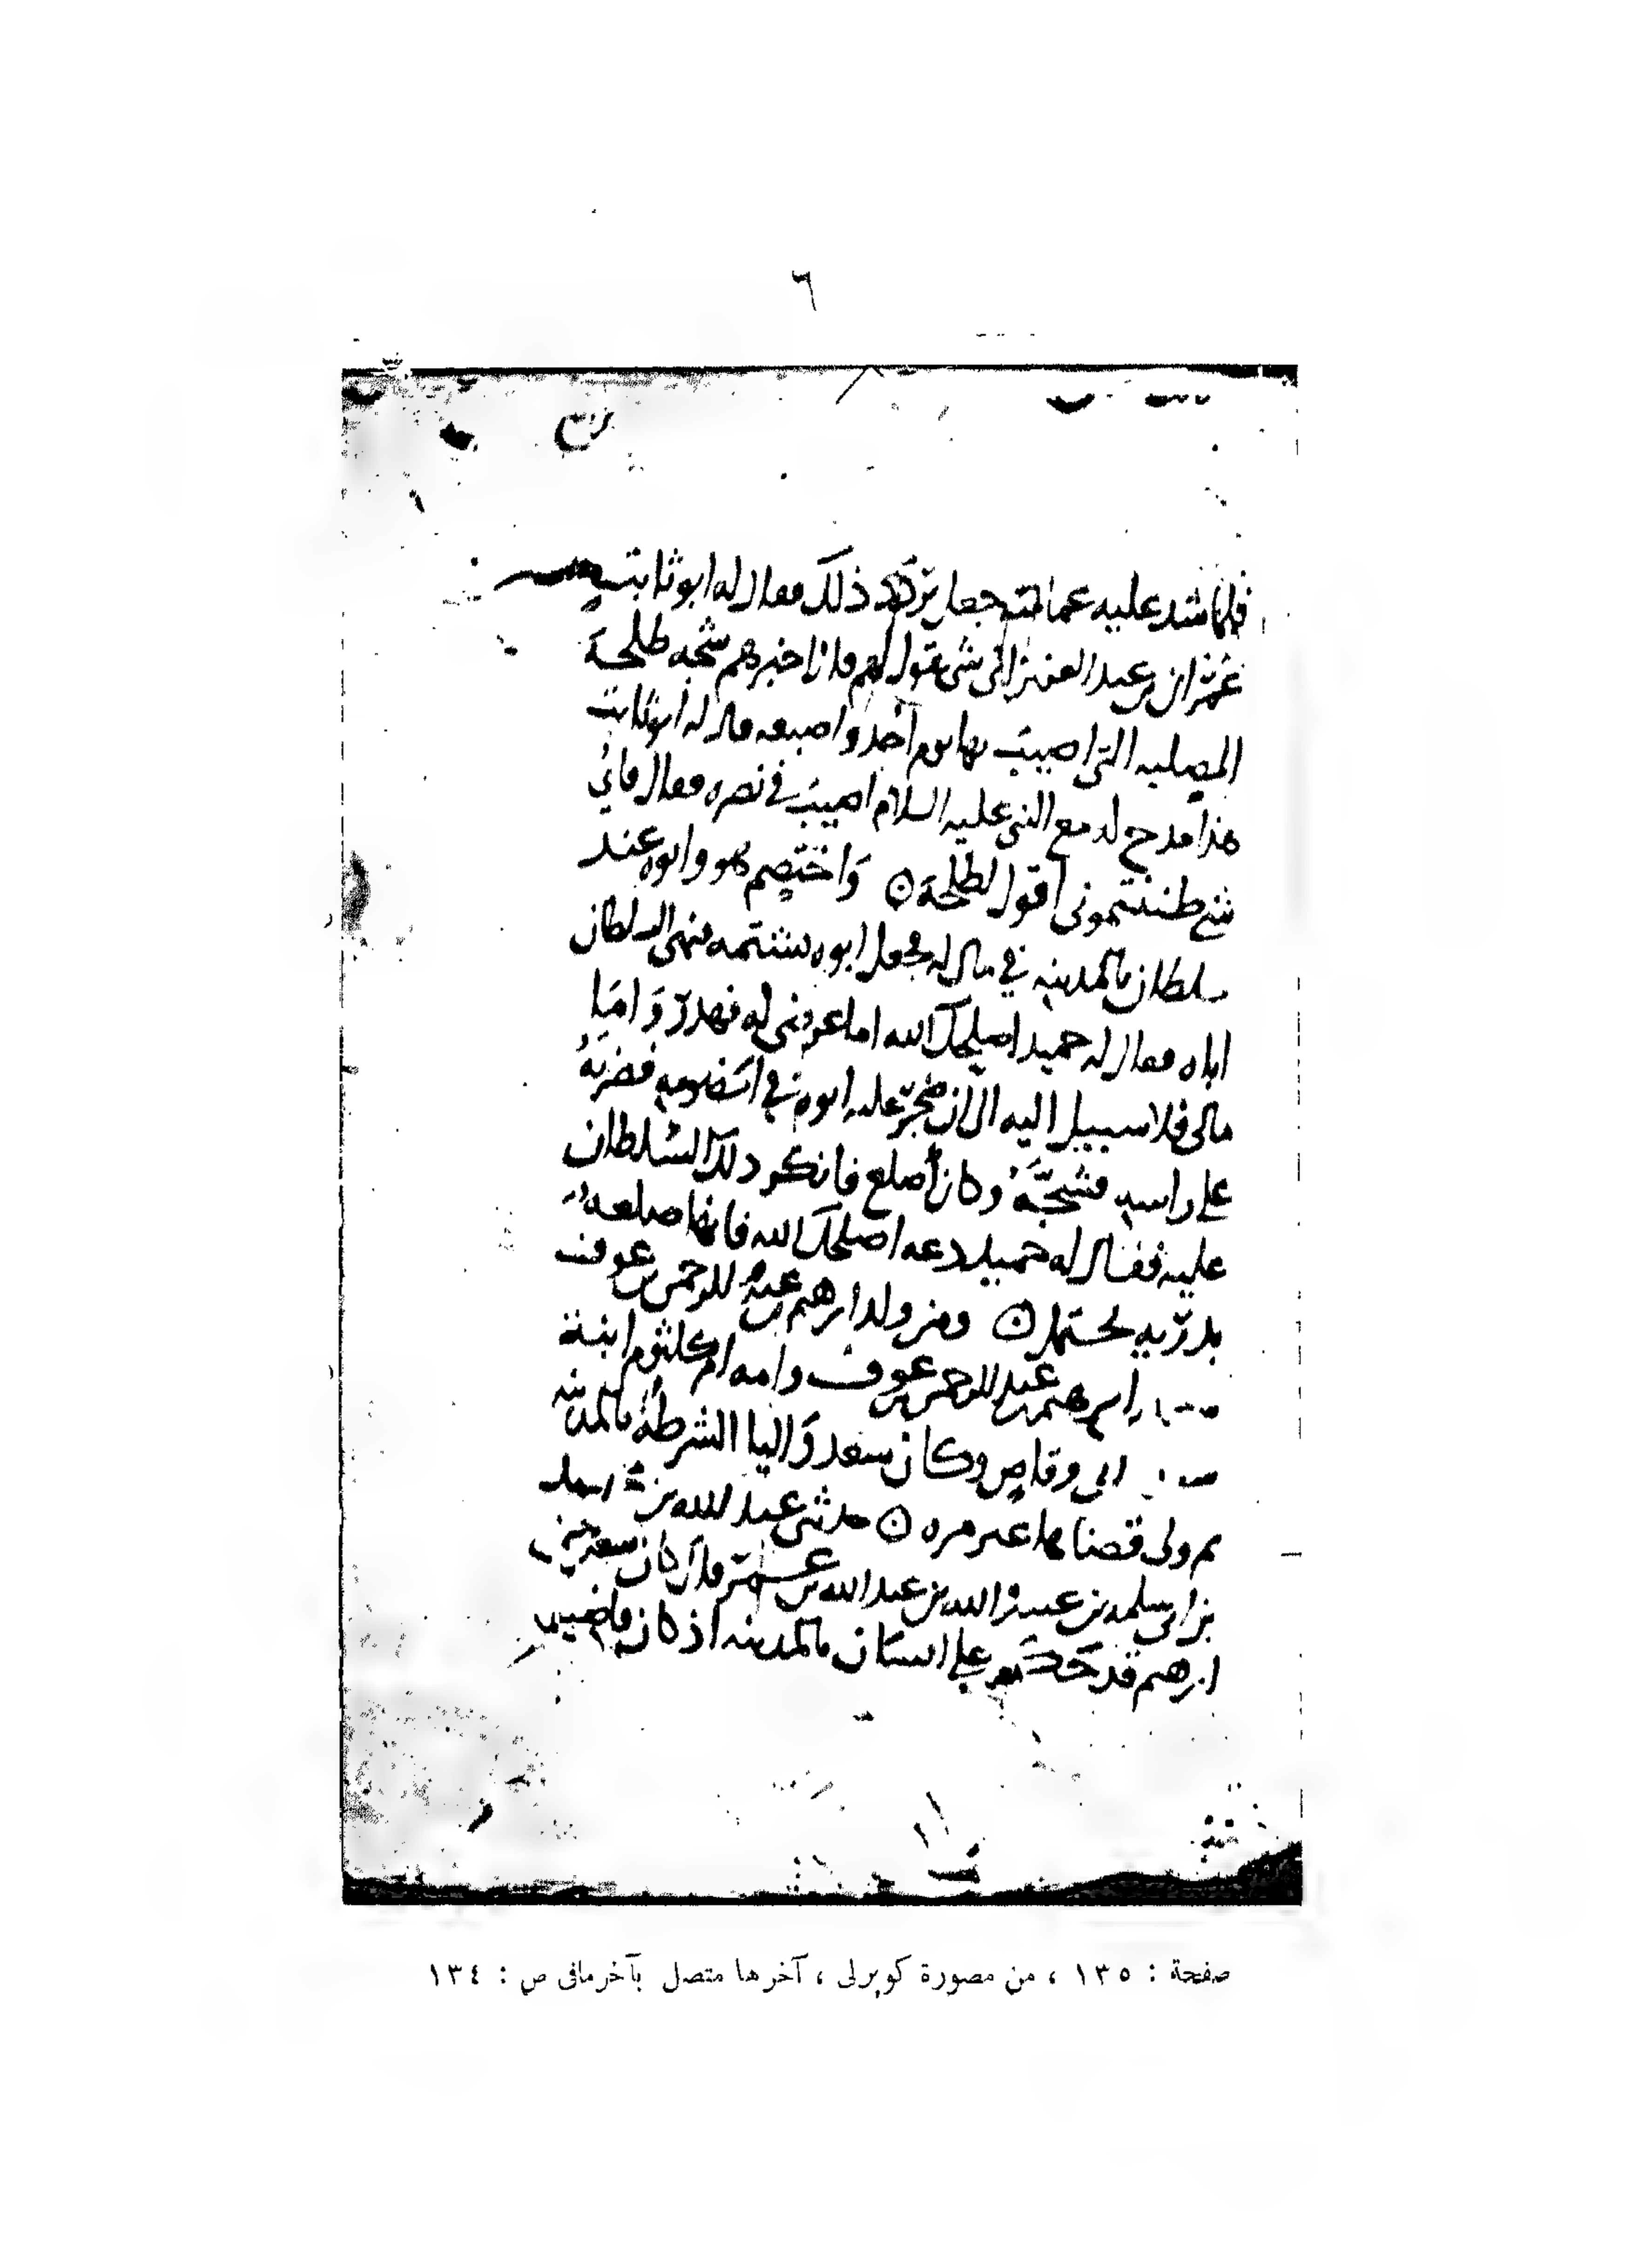 ٦
فلما شد عليه عمامته جعل يردد ذلك فقال له ابو ثابت
عمران بن عبد العزيز اى شى تقول لهم قال اخبرهم شجه طلحة
المصلبه التى اصيب بها يوم أحد واصبعه قال له ابو ثابت
هذا مدح له مع النبى عليه السلام اصيب فى نصره فقال فاى
شى ظننتمونى اقول لطلحة ن واختصم هو وابوه عند
سلطان بالمدينه في مال له فجعل ابوه يشتمه فنهى السلطان
اباه فقال له حميد اصلحك الله اما عرضى له فهدر وَاما
مالى فلا سبيل اليه الى ان ضجر عليه ابوه في الخصومه فضربهُ
على راسه فشجَّهُ وكان أصلع فانكر ذلك السلطان
عليه فقال له حميد دعه اصلحك الله فانها صلعه
بدريه تحتمل ن ومن ولد ابرهيم بن عبد الرحمن بن عوف
ابرهيم بن عبد الرحمن بن عوف وامه ام كلثوم ابنة
ابى وقاص وكان سعد وَاليا الشرطة بالمدينه
ثم ولى قضاها غير مره ن حدثنى عبد الله بن
بن ابى سلمه بن عبيد الله بن عبد الله بن عمر قال كان سعد بن
ابرهيم قد على بالمدينه اذ كان قاضيا
صفحة : ١٣٥ ، من مصورة كوبرلى ، آخرها متصل بآخر مافى ص : ١٣٤